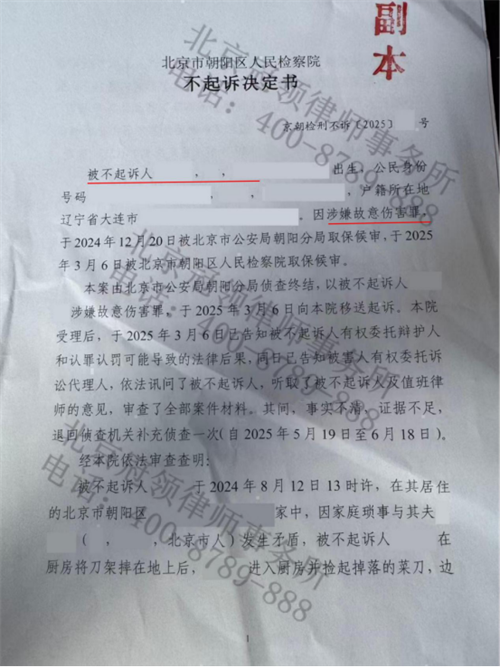 副本
北京市朝阳区人民检察院
不起诉决定书
京朝检刑不诉〔2025〕 号
被不起诉人 , , 出生,公民身份
号码 , ,户籍所在地
辽宁省大连市 。因涉嫌故意伤害罪,
于2024年12月20日被北京市公安局朝阳分局取保候审,于2025
年3月6日被北京市朝阳区人民检察院取保候审。
本案由北京市公安局朝阳分局侦查终结,以被不起诉人
涉嫌故意伤害罪,于2025年3月6日向本院移送起诉。本院
受理后,于2025年3月6日已告知被不起诉人有权委托辩护人
和认罪认罚可能导致的法律后果,同日已告知被害人有权委托诉
讼代理人,依法讯问了被不起诉人,听取了被不起诉人及值班律
师的意见,审查了全部案件材料。其间,事实不清、证据不足,
退回侦查机关补充侦查一次(自2025年5月19日至6月18日)。
经本院依法审查查明:
被不起诉人 于2024年8月12日13时许,在其居住
的北京市朝阳区 家中,因家庭琐事与其夫
( , ,北京市人)发生矛盾,被不起诉人 在
厨房将刀架摔在地上后, 进入厨房并捡起掉落的菜刀,边
1
北京冠领律师事务所
电话:400-8789-888
北京冠领律师事务所
电话:400-8789-888
北京冠领律师事务所
电话:400-8789-888